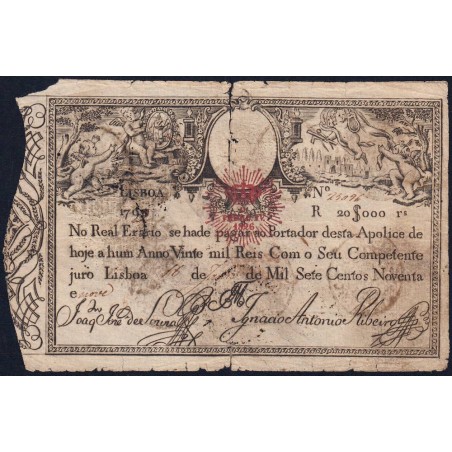 LISBOA
Nº
179
R 20$000 rˢ
No Real Erario se hade pagar ao Portador desta Apolice de
hoje a hum Anno Vinte mil Reis Com o Seu Competente
juro Lisboa de de Mil Sete Centos Noventa
e nove
Joaq Jose de Souza Ignacio Antonio Ribeiro